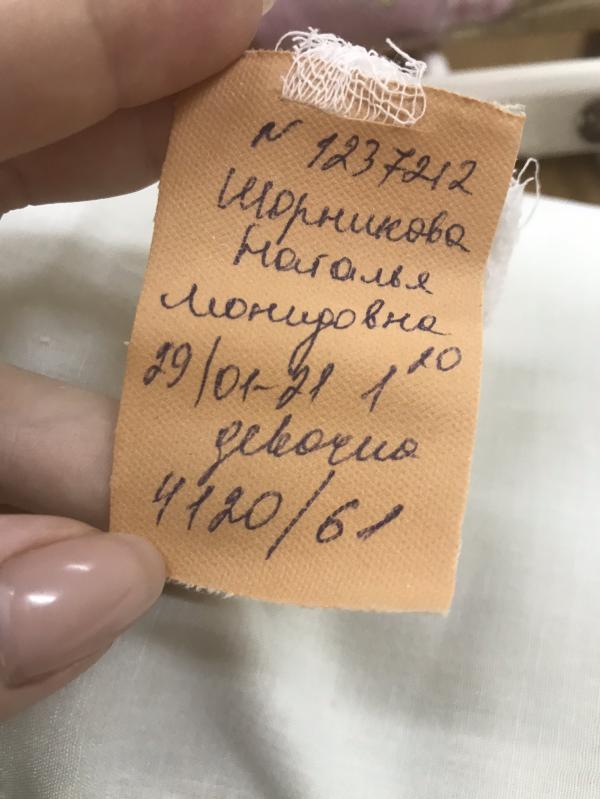 N 1237212
Шорникова
Наталья
Леонидовна
29/01-21 1 20
девочка
4120/61